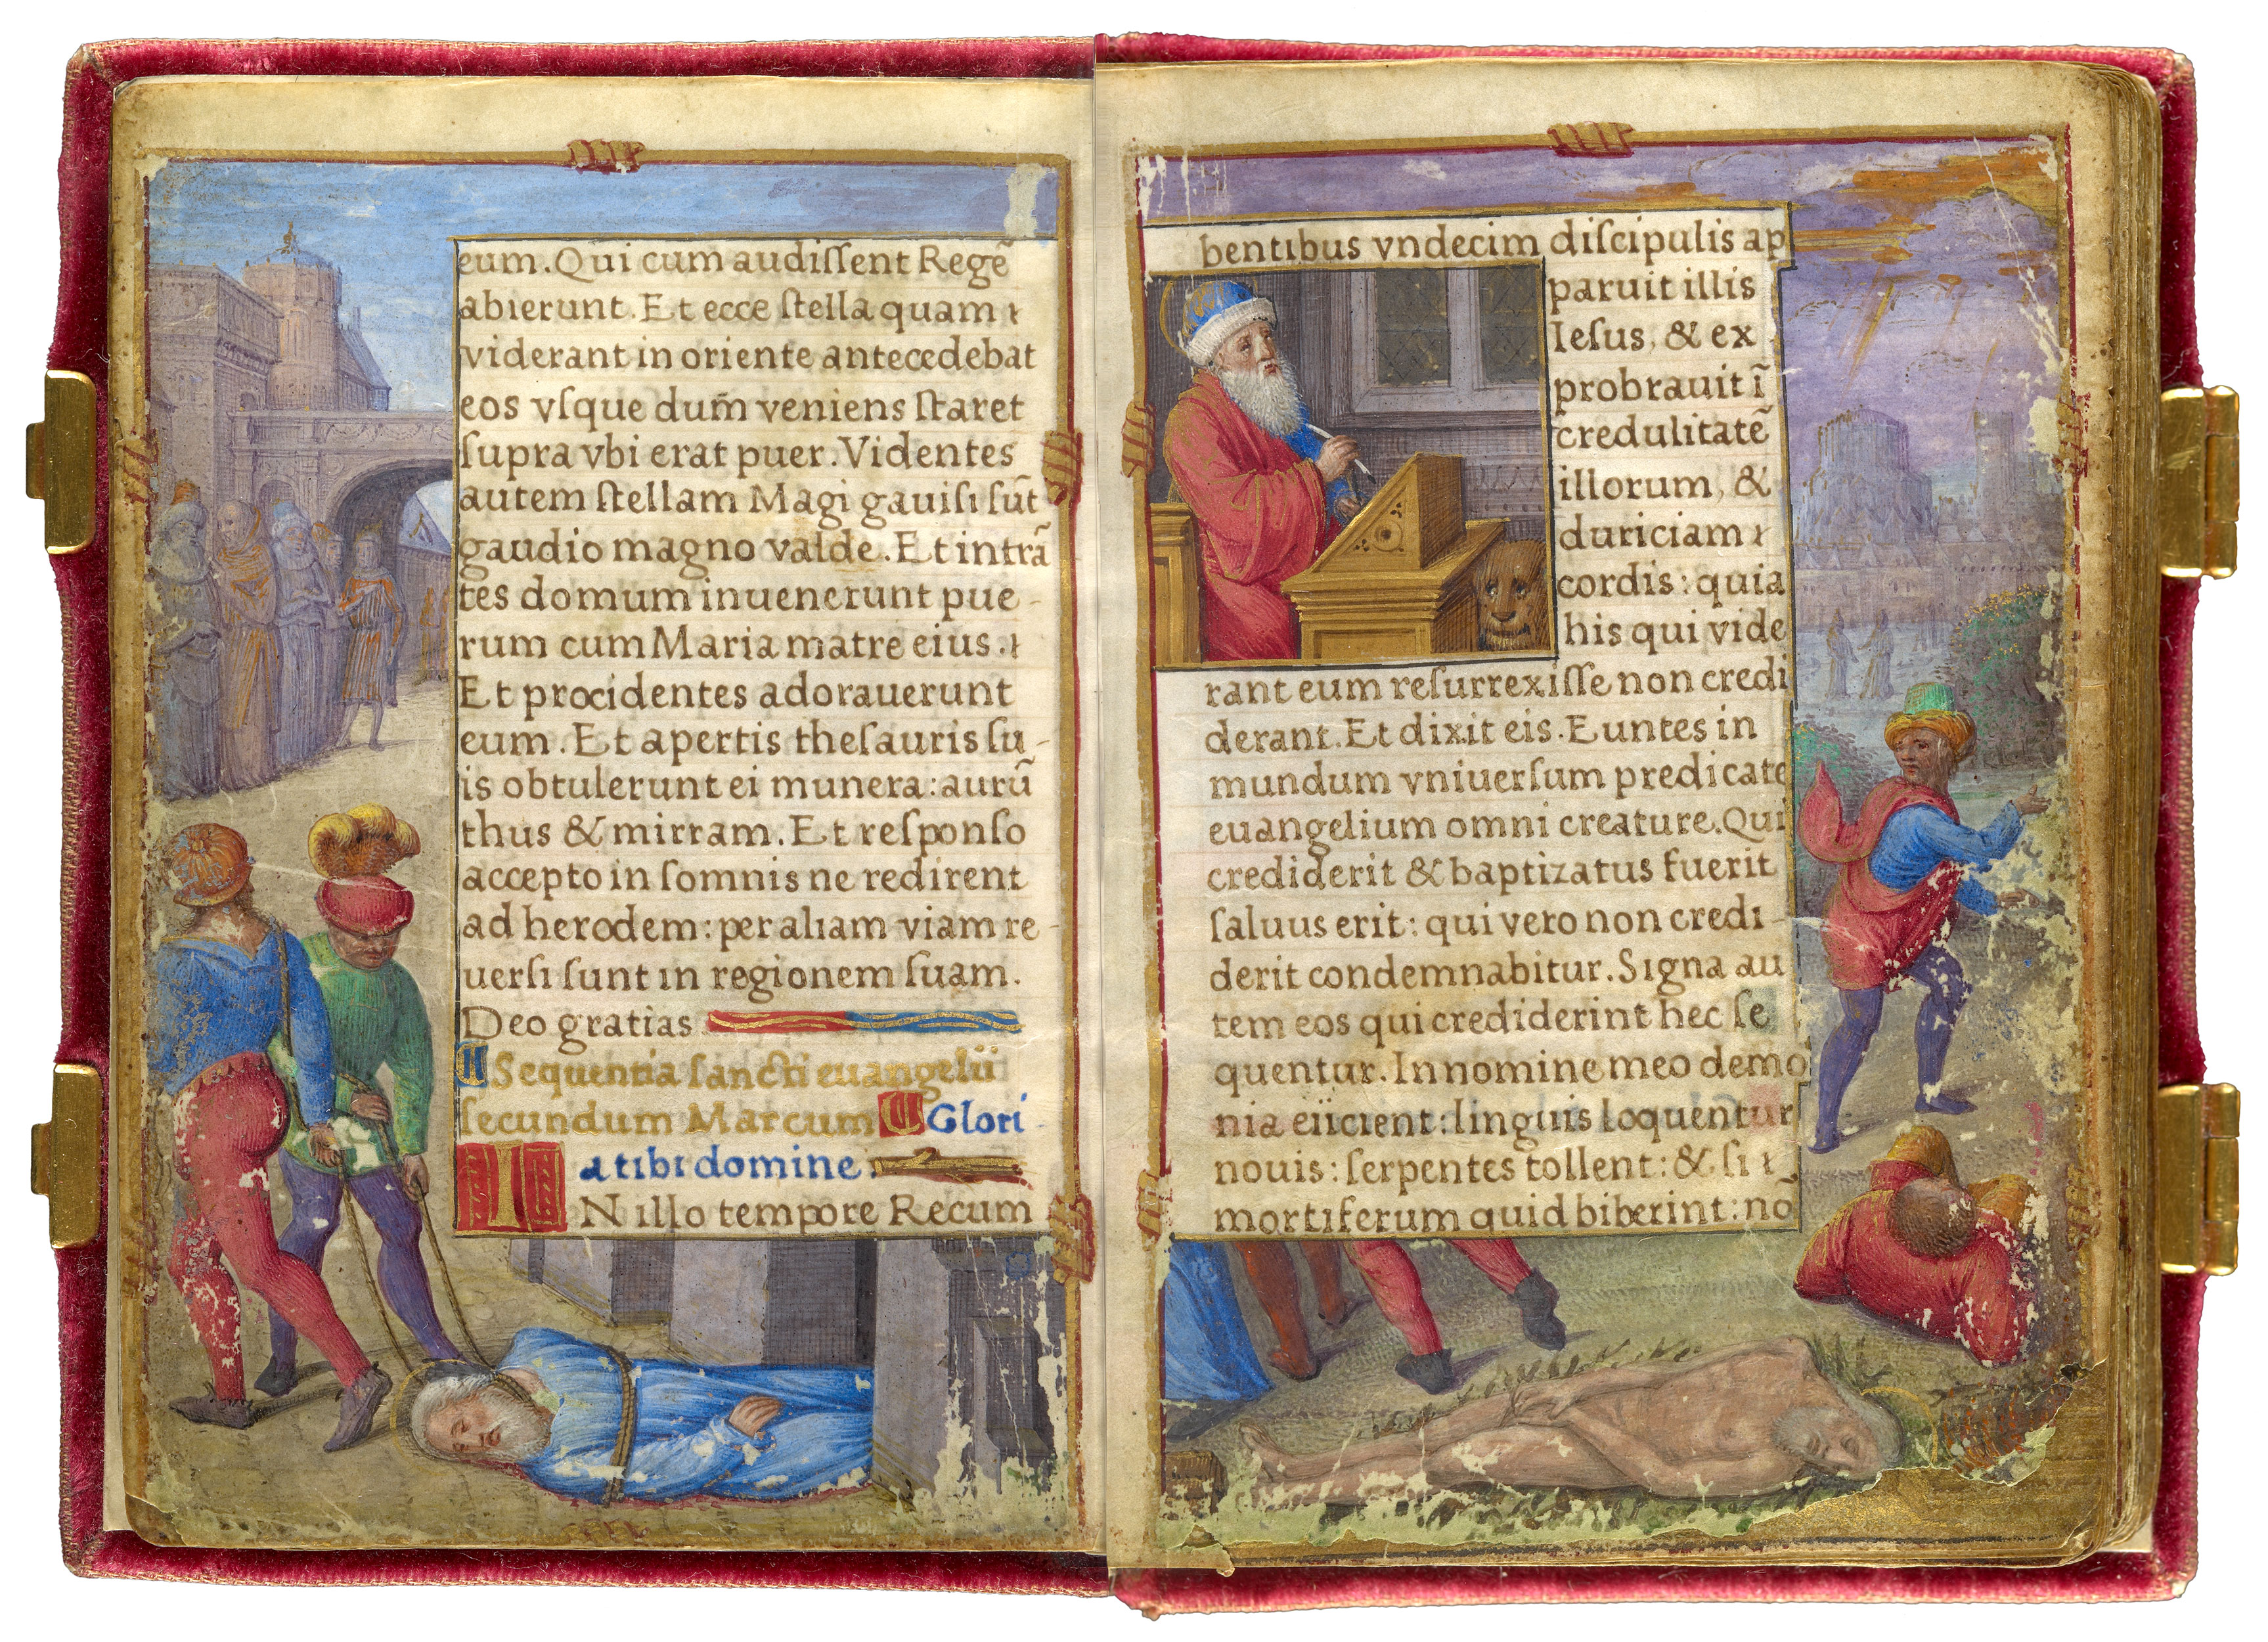 eum. Qui cum audiſſent Regē
abierunt. Et ecce ſtella quam ꝛ
viderant in oriente antecedebat
eos vſque dum̄ veniens ſtaret
ſupra vbi erat puer. Videntes
autem ſtellam Magi gauiſi ſūt
gaudio magno valde. Et intrā
tes domum inuenerunt pue-
rum cum Maria matre eius. ꝛ
Et procidentes adorauerunt
eum. Et apertis theſauris ſu-
is obtulerunt ei munera: aurū
thus & mirram. Et reſponſo
accepto in ſomnis ne redirent
ad herodem: per aliam viam re-
uerſi ſunt in regionem ſuam.
Deo gratias
Sequentia ſancti euangelii
ſecundum Marcum Glori-
a tibi domine.
IN illo tempore Recum
bentibus vndecim diſcipulis ap
paruit illis
Ieſus, & ex
probrauit ī
credulitatē
illorum, &
duriciam ꝛ
cordis: quia
his qui vide
rant eum reſurrexiſſe non credi
derant. Et dixit eis. Euntes in
mundum vniuerſum predicate
euangelium omni creature. Qui
crediderit & baptizatus fuerit
ſaluus erit: qui vero non credi-
derit condemnabitur. Signa au
tem eos qui crediderint hec ſe
quentur. In nomine meo demo
nia eiicient: linguis loquentur
nouis: ſerpentes tollent: & ſi ꝛ
mortiferum quid biberint: nō